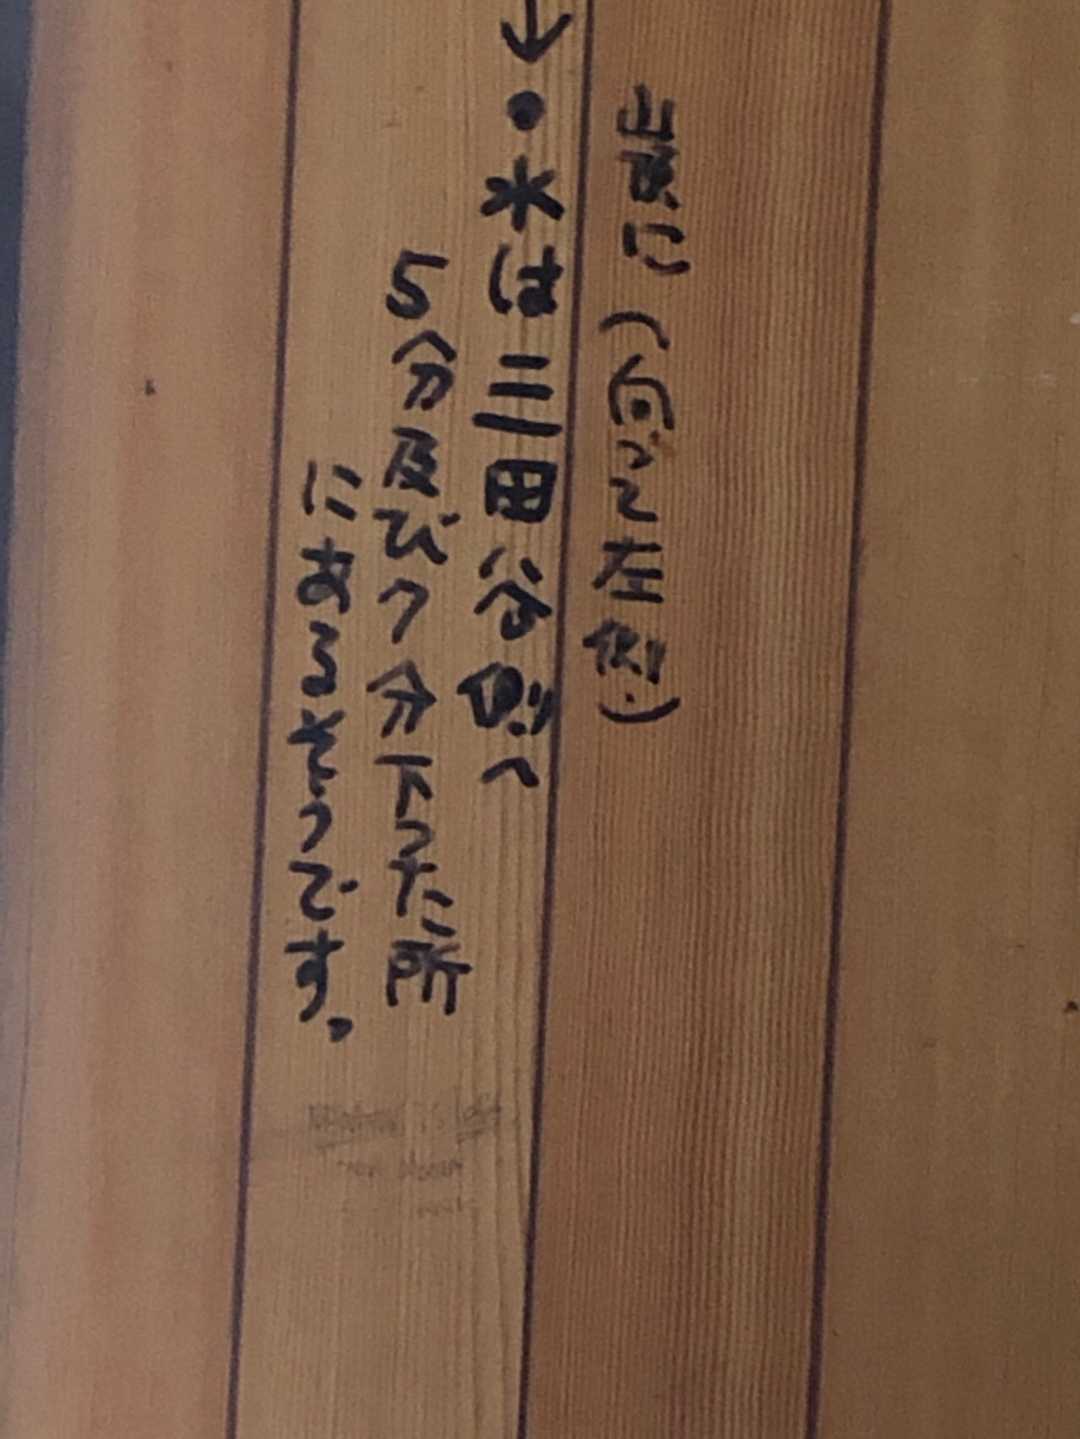 山頂に(向って左側.)
↓・水は三田谷側へ
5分及び7分下った所
にあるそうです。